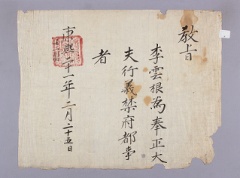 敎旨
李雲根爲奉正大
夫行義禁府都事
者
康熙二十一年二月二十五日